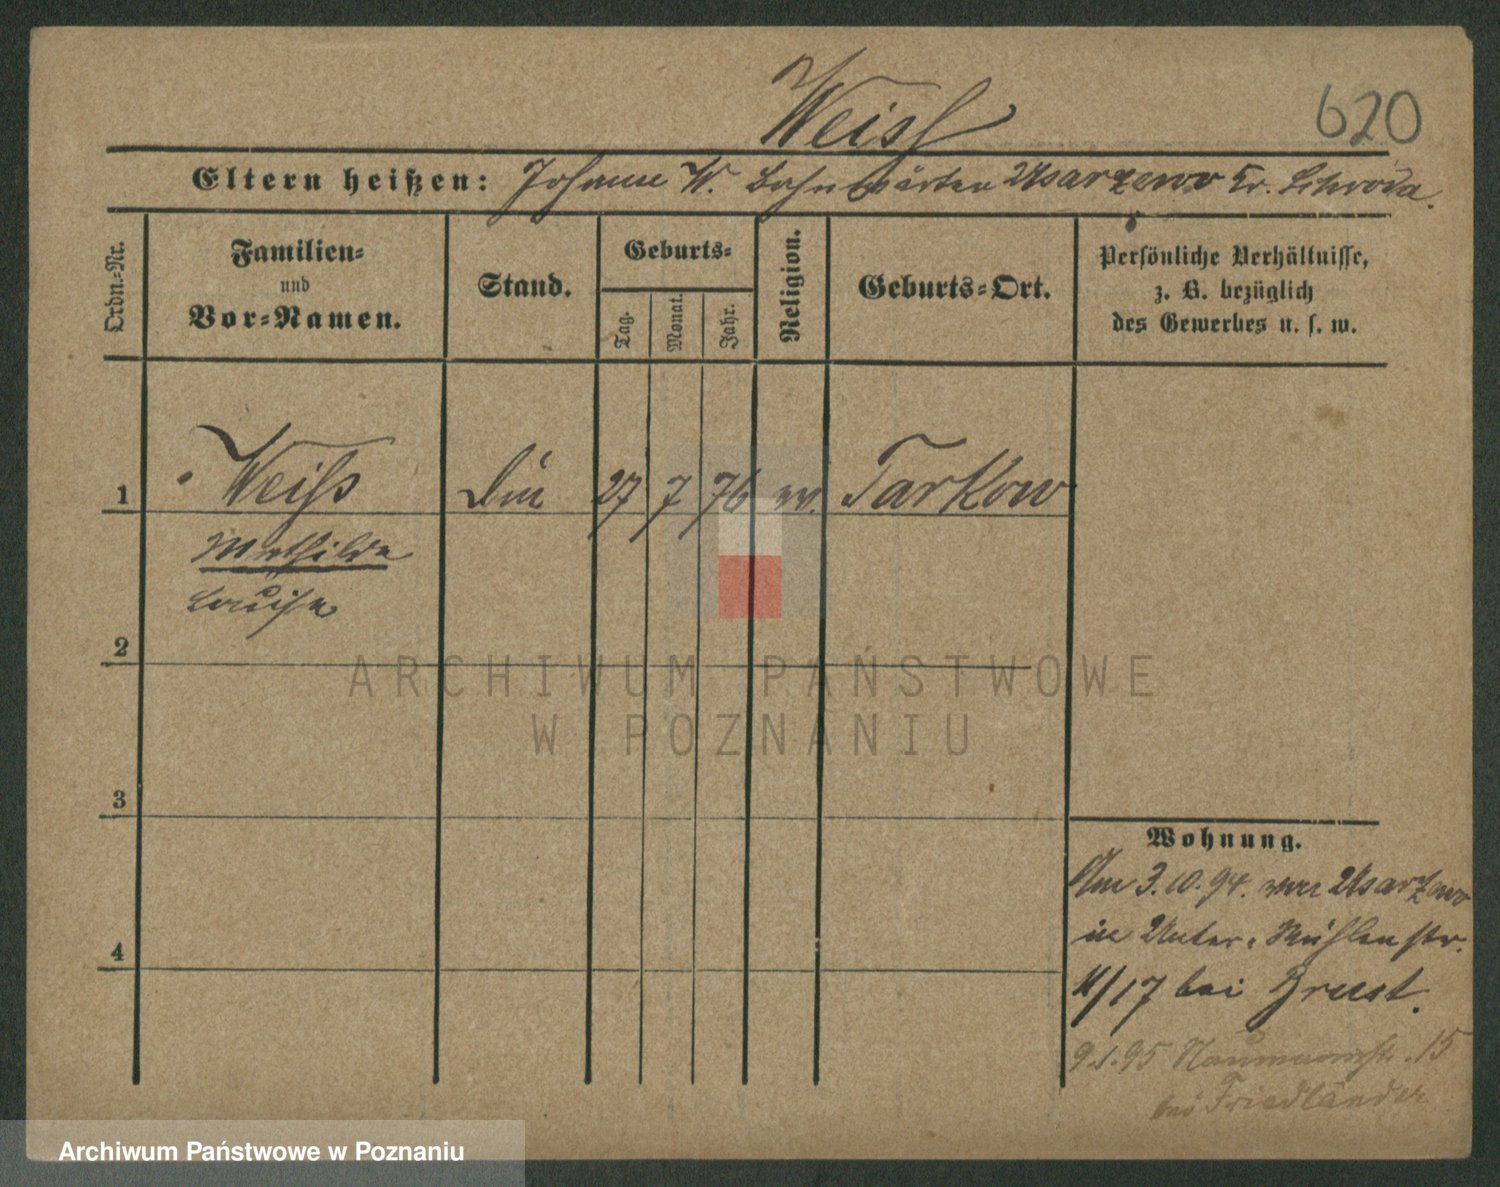 Weiß
620
Eltern heißen: Johann W. Bahnwärter Usarzewo Kr. Schroda.
Ordn.-Nr.
Familien-
und
Vor-Namen.
Stand.
Geburts-
Tag.
Monat.
Jahr.
Religion.
Geburts-Ort.
Persönliche Verhältnisse,
z. B. bezüglich
des Gewerbes u. s. w.
1
Weiß
27
7
76
Tarkow
Mathilde
Louise
2
ARCHIWUM PAŃSTWOWE
W POZNANIU
3
Wohnung.
Am 3.10.94. von Usarzewo
in Unter-Mühlenstr.
4
11/17 bei Brust.
9.1.95 Naumannstr. 15
bei Friedländer
Archiwum Państwowe w Poznaniu